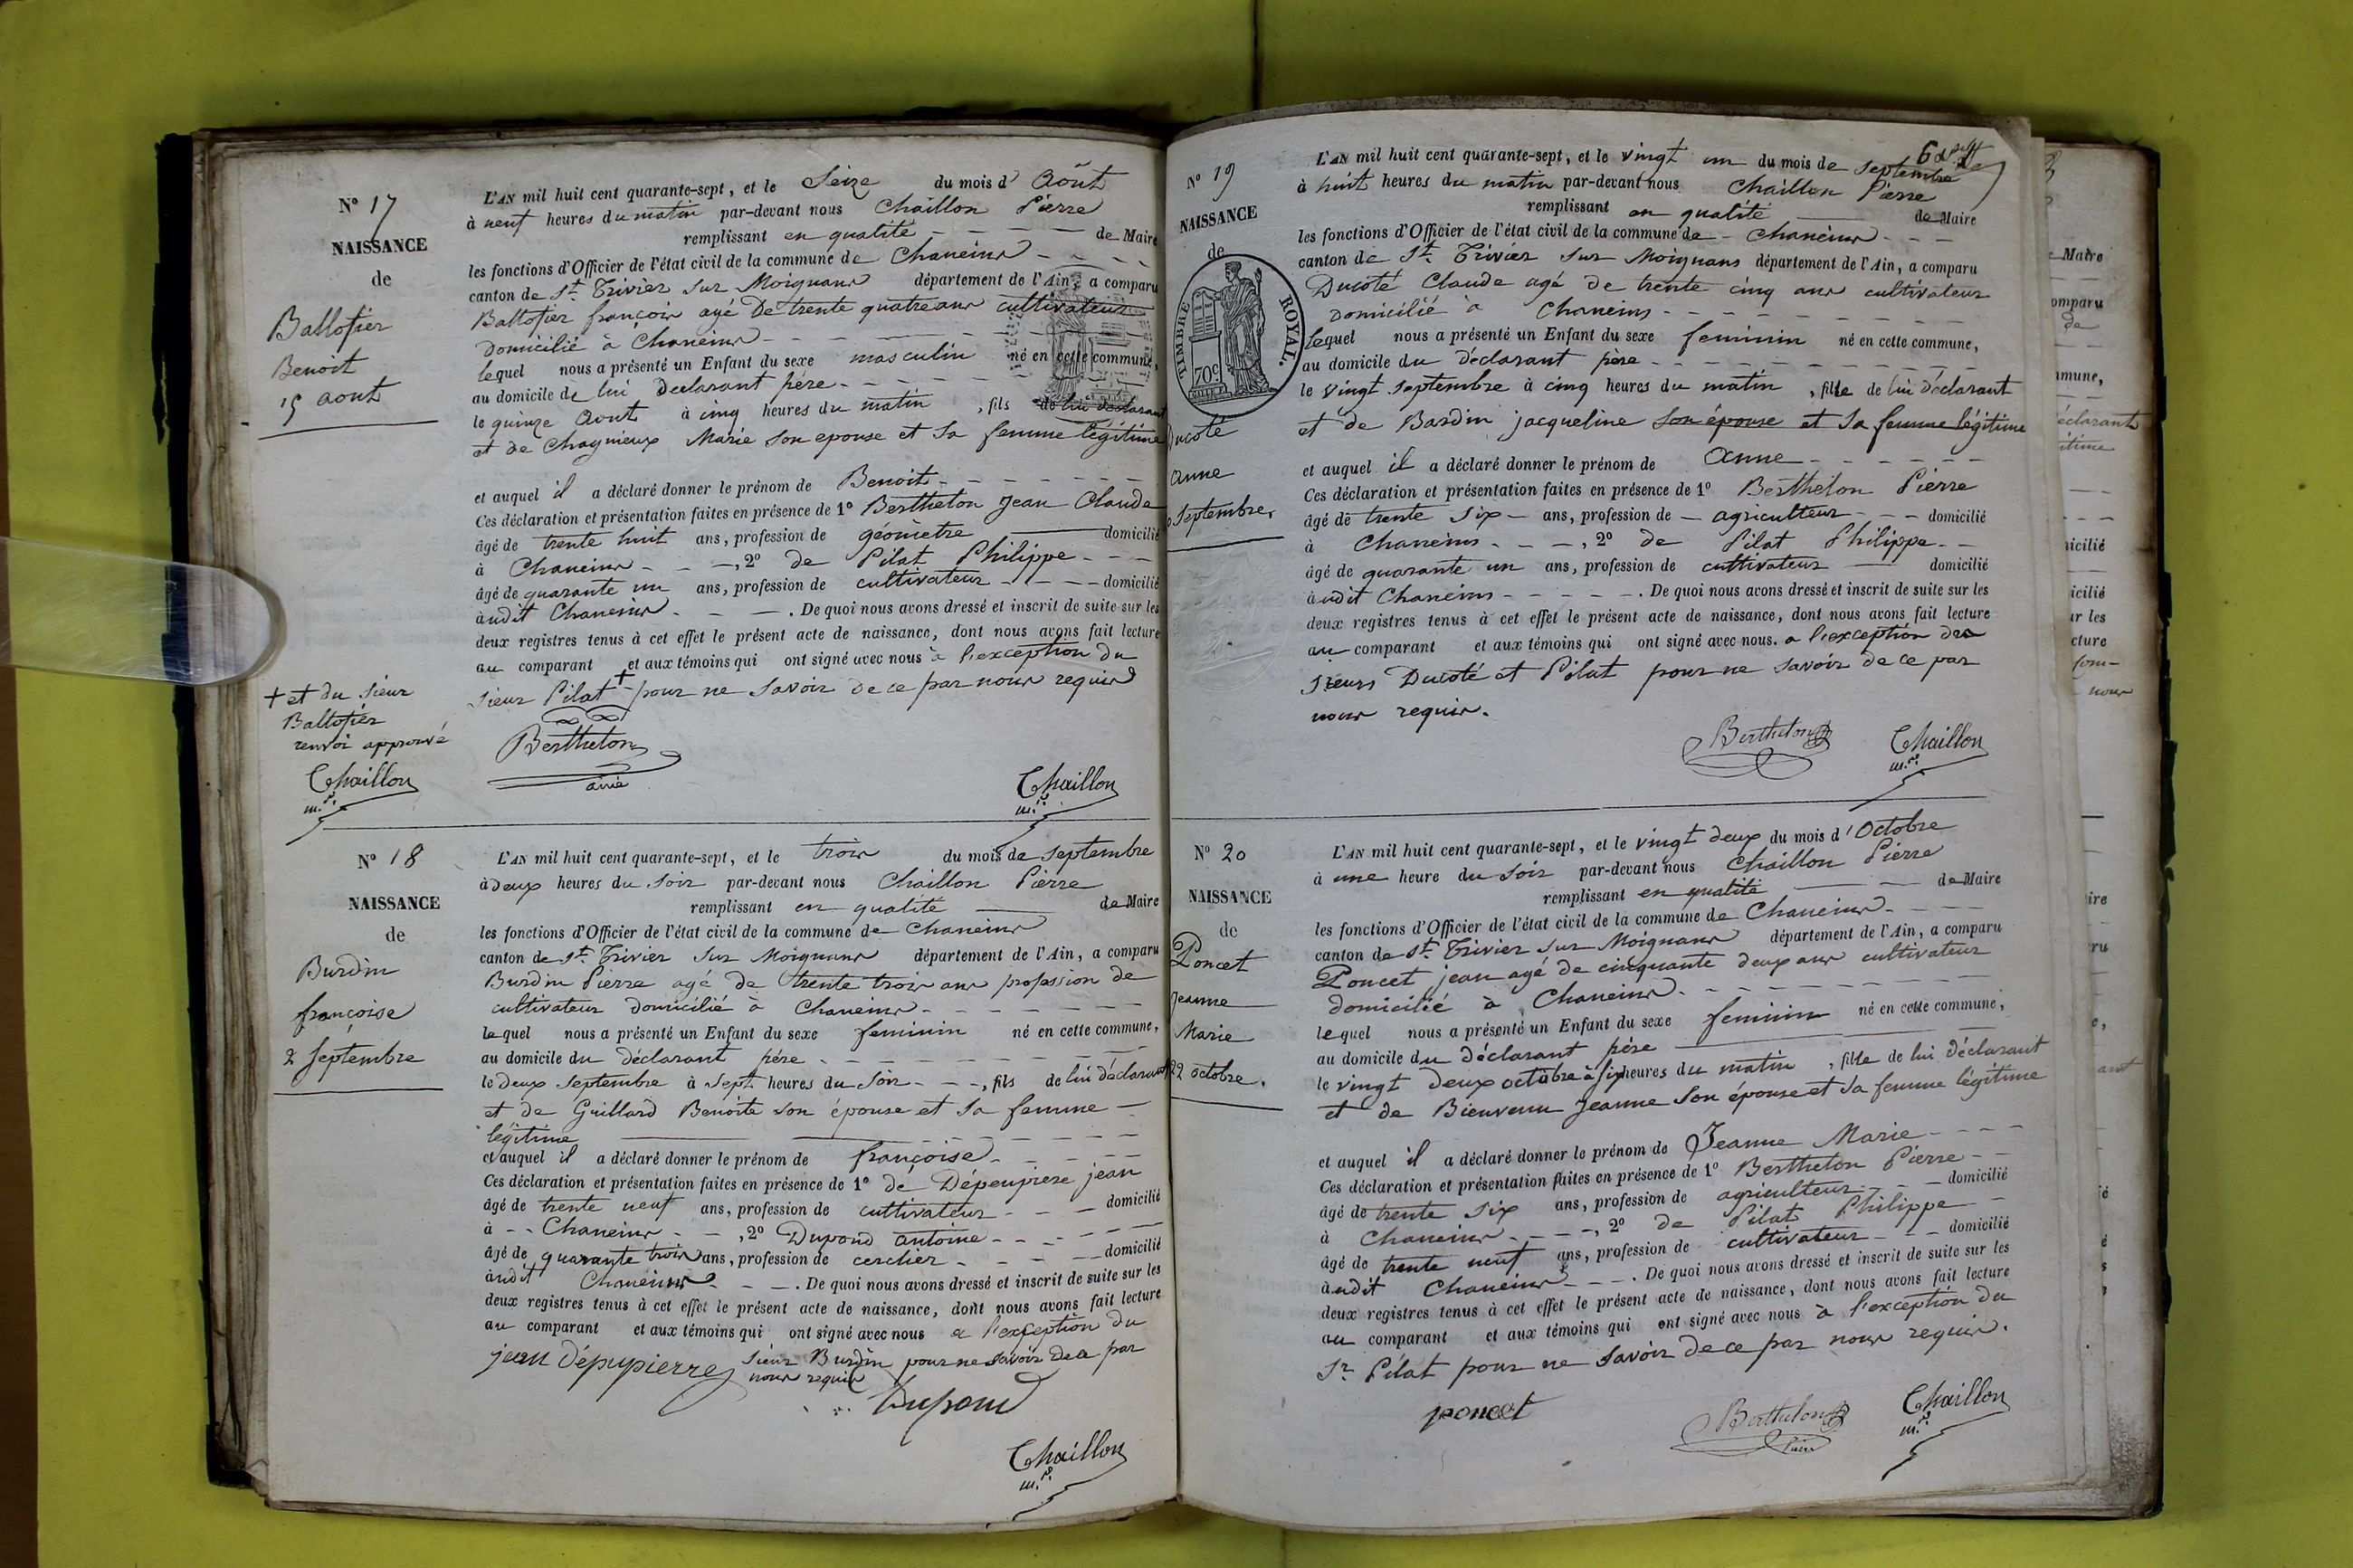 N° 17
NAISSANCE
de
Ballofier
Benoit
15 aout
L'AN mil huit cent quarante-sept, et le Seize du mois d' Août
à neuf heures du matin par-devant nous Chaillon Pierre
remplissant en qualité de Maire
les fonctions d'Officier de l'état civil de la commune de Chaneins
canton de St. Trivier sur Moignans département de l'Ain, a comparu
Ballofier françois agé De trente quatre ans cultivateur
domicilié à Chaneins
lequel nous a présenté un Enfant du sexe masculin né en cette commune,
au domicile de lui Declarant pére
le quinze Aout à cinq heures du matin, fils de lui déclarant
et de Chagnieux Marie son epouse et sa femme légitime
et auquel il a déclaré donner le prénom de Benoit
Ces déclaration et présentation faites en présence de 1° Berthelon Jean Claude
âgé de trente huit ans, profession de géomètre domicilié
à Chaneins, 2° de Pilat Philippe
âgé de quarante un ans, profession de cultivateur domicilié
audit Chaneins. De quoi nous avons dressé et inscrit de suite sur les
deux registres tenus à cet effet le présent acte de naissance, dont nous avons fait lecture
au comparant et aux témoins qui ont signé avec nous à l'exception du
sieur Pilat + pour ne savoir de ce par nous requis
+ et du sieur
Ballofier
renvoi approuvé
Chaillon
m.re
Berthelon
ainé
Chaillon
m.re
N° 18
NAISSANCE
de
Burdin
françoise
2 Septembre
L'AN mil huit cent quarante-sept, et le trois du mois de septembre
à deux heures du soir par-devant nous Chaillon Pierre
remplissant en qualité de Maire
les fonctions d'Officier de l'état civil de la commune de Chaneins
canton de St. Trivier sur Moignans département de l'Ain, a comparu
Burdin Pierre agé de trente trois ans profession de
cultivateur domicilié à Chaneins
lequel nous a présenté un Enfant du sexe feminin né en cette commune,
au domicile du déclarant pére
le deux septembre à sept heures du soir, fils de lui déclarant
et de Guillard Benoite son épouse et sa femme
légitime
et auquel il a déclaré donner le prénom de françoise
Ces déclaration et présentation faites en présence de 1° de Dépeupiere jean
âgé de trente neuf ans, profession de cultivateur domicilié
à Chaneins, 2° Dupond antoine
âgé de quarante trois ans, profession de cerclier domicilié
audit Chaneins. De quoi nous avons dressé et inscrit de suite sur les
deux registres tenus à cet effet le présent acte de naissance, dont nous avons fait lecture
au comparant et aux témoins qui ont signé avec nous a l'exception du
sieur Burdin pour ne savoir de ce par
nous requis
jean dépupierre
Dupond
Chaillon
m.re
N° 19
NAISSANCE
de
TIMBRE ROYAL.
70c
Ducoté
anne
Septembre
L'AN mil huit cent quarante-sept, et le vingt un du mois de septembre
à huit heures du matin par-devant nous Chaillon Pierre
remplissant en qualité de Maire
les fonctions d'Officier de l'état civil de la commune de Chaneins
canton de St. Trivier sur Moignans département de l'Ain, a comparu
Ducoté Claude agé de trente cinq ans cultivateur
domicilié à Chaneins
lequel nous a présenté un Enfant du sexe feminin né en cette commune,
au domicile du déclarant père
le vingt septembre à cinq heures du matin, fille de lui déclarant
et de Bardin jacqueline son épouse et sa femme légitime
et auquel il a déclaré donner le prénom de anne
Ces déclaration et présentation faites en présence de 1° Berthelon Pierre
âgé de trente six ans, profession de agriculteur domicilié
à Chaneins, 2° de Pilat Philippe
âgé de quarante un ans, profession de cultivateur domicilié
audit Chaneins. De quoi nous avons dressé et inscrit de suite sur les
deux registres tenus à cet effet le présent acte de naissance, dont nous avons fait lecture
au comparant et aux témoins qui ont signé avec nous. a l'exception des
sieurs Ducoté et Pilat pour ne savoir de ce par
nous requis.
Berthelon
Chaillon
m.re
N° 20
NAISSANCE
de
Poncet
Jeanne
Marie
22 octobre.
L'AN mil huit cent quarante-sept, et le vingt deux du mois d'Octobre
à une heure du soir par-devant nous Chaillon Pierre
remplissant en qualité de Maire
les fonctions d'Officier de l'état civil de la commune de Chaneins
canton de St. Trivier sur Moignans département de l'Ain, a comparu
Poncet jean agé de cinquante deux ans cultivateur
domicilié à Chaneins
lequel nous a présenté un Enfant du sexe feminin né en cette commune,
au domicile du déclarant père
le vingt deux octobre à six heures du matin, fille de lui déclarant
et de Bienvenu Jeanne son épouse et sa femme légitime
et auquel il a déclaré donner le prénom de Jeanne Marie
Ces déclaration et présentation faites en présence de 1° Berthelon Pierre
âgé de trente six ans, profession de agriculteur domicilié
à Chaneins, 2° de Pilat Philippe
âgé de trente neuf ans, profession de cultivateur domicilié
audit Chaneins. De quoi nous avons dressé et inscrit de suite sur les
deux registres tenus à cet effet le présent acte de naissance, dont nous avons fait lecture
au comparant et aux témoins qui ont signé avec nous à l'exception du
Sr Pilat pour ne savoir de ce par nous requis.
poncet
Berthelon
Chaillon
m.re